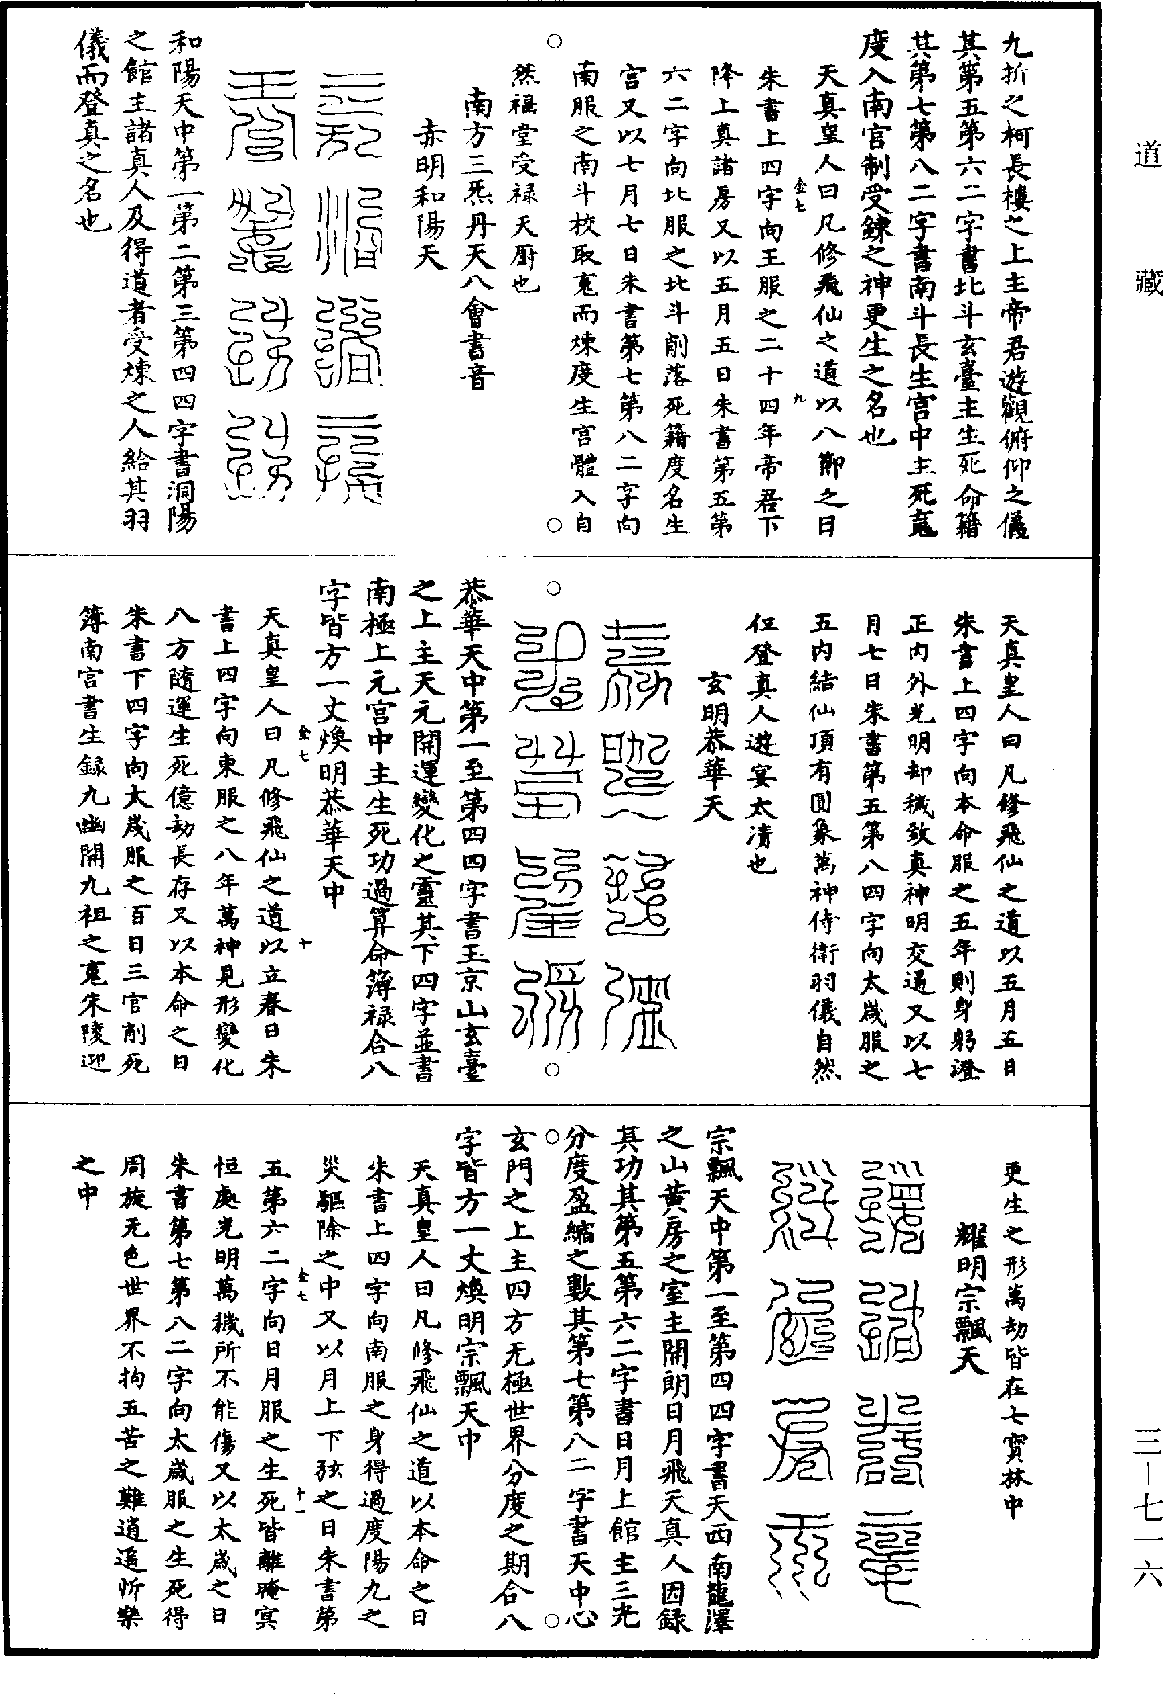 道藏
三—七一六
九折之柯長樓之上主帝君遊觀俯仰之儀
其第五第六二字書北斗玄臺主生死命籍
其第七第八二字書南斗長生宮中主死䰟
度入南宮制受鍊之神更生之名也
天真皇人曰凡修飛仙之道以八節之日
朱書上四字向王服之二十四年帝君下
降上真諸房又以五月五日朱書第五第
六二字向北服之北斗削落死籍度名生
宮又以七月七日朱書第七第八二字向
南服之南斗校取䰟而煉度生宮體入自
然福堂受禄天厨也
南方三炁丹天八會書音
赤明和陽天
和陽天中第一第二第三第四四字書洞陽
之館主諸真人及得道者受煉之人給其羽
儀而登真之名也
天真皇人曰凡修飛仙之道以五月五日
朱書上四字向本命服之五年則身躬澄
正内外光明却穢致真神明交通又以七
月七日朱書第五第八四字向太歲服之
五内結仙頂有圓象萬神侍衛羽儀自然
位登真人遊宴太清也
玄明恭華天
恭華天中第一至第四四字書玉京山玄臺
之上主天元開運變化之靈其下四字並書
南極上元宮中主生死功過算命簿禄合八
字皆方一丈煥明恭華天中
天真皇人曰凡修飛仙之道以立春日朱
書上四字向東服之八年萬神見形變化
八方隨運生死億劫長存又以本命之日
朱書下四字向太歲服之百日三官削死
簿南宮書生録九幽開九祖之䰟朱陵迎
更生之形萬劫皆在七寳林中
耀明宗飄天
宗飄天中第一至第四四字書天西南龍澤
之山黄房之室主開朗日月飛天真人因録
其功其第五第六二字書日月上館主三光
分度盈縮之數其第七第八二字書天中心
玄門之上主四方无極世界分度之期合八
字皆方一丈煥明宗飄天中
天真皇人曰凡修飛仙之道以本命之日
朱書上四字向南服之身得過度陽九之
災驅除之中又以月上下弦之日朱書第
五第六二字向日月服之生死皆離晻冥
恒處光明萬穢所不能傷又以太歲之日
朱書第七第八二字向太歲服之生死得
周旋无色世界不拘五苦之難逍遥忻樂
之中